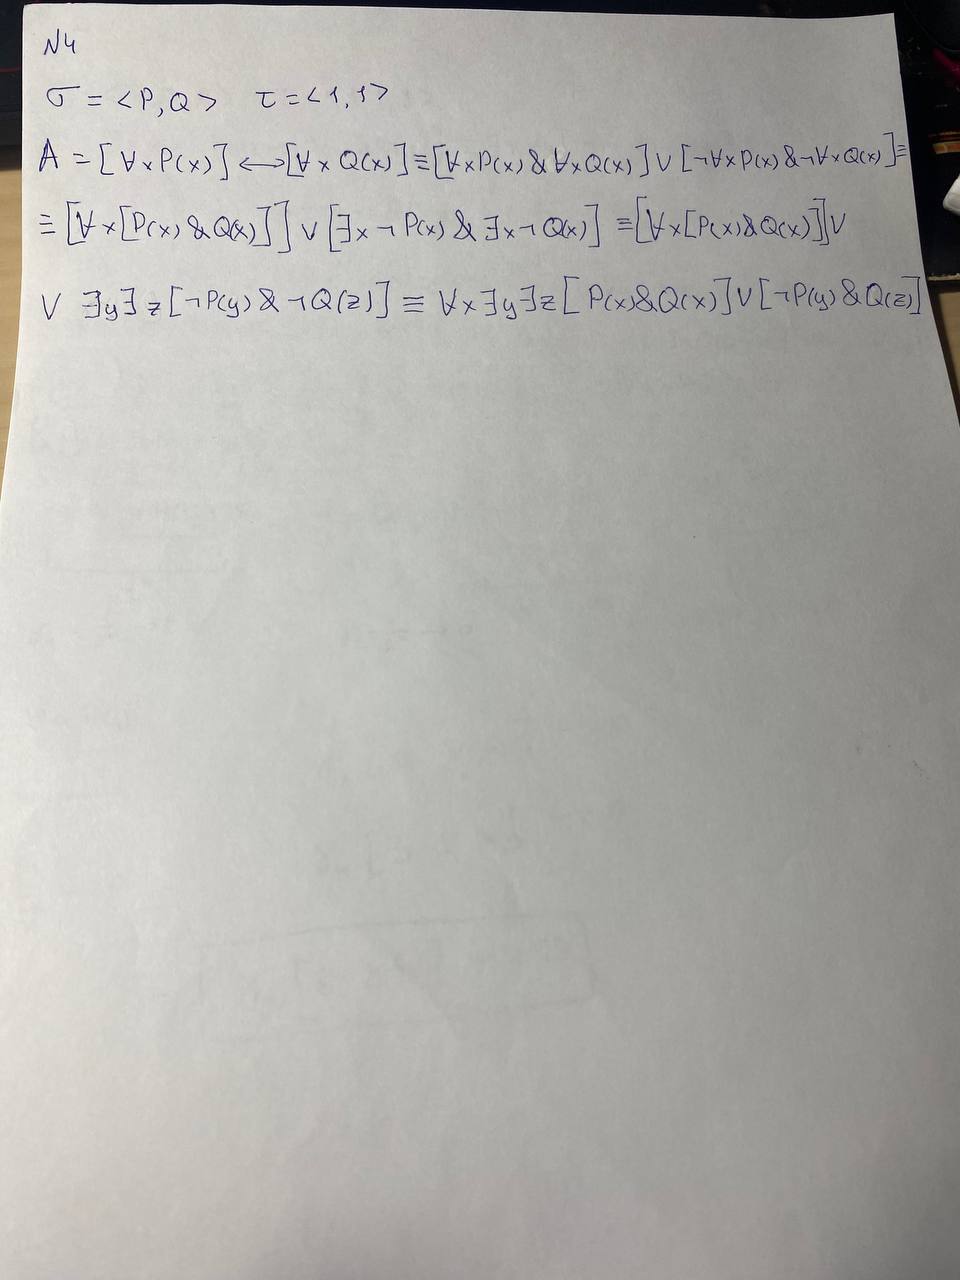 N4
σ = <P, Q> τ = <1, 1>
A = [∀x P(x)] ⟷ [∀x Q(x)] ≡ [∀x P(x) & ∀x Q(x)] ∨ [¬∀x P(x) & ¬∀x Q(x)] ≡
≡ [∀x [P(x) & Q(x)]] ∨ [∃x ¬P(x) & ∃x ¬Q(x)] ≡ [∀x [P(x) & Q(x)]] ∨
∨ ∃y ∃z [¬P(y) & ¬Q(z)] ≡ ∀x ∃y ∃z [P(x) & Q(x)] ∨ [¬P(y) & Q(z)]